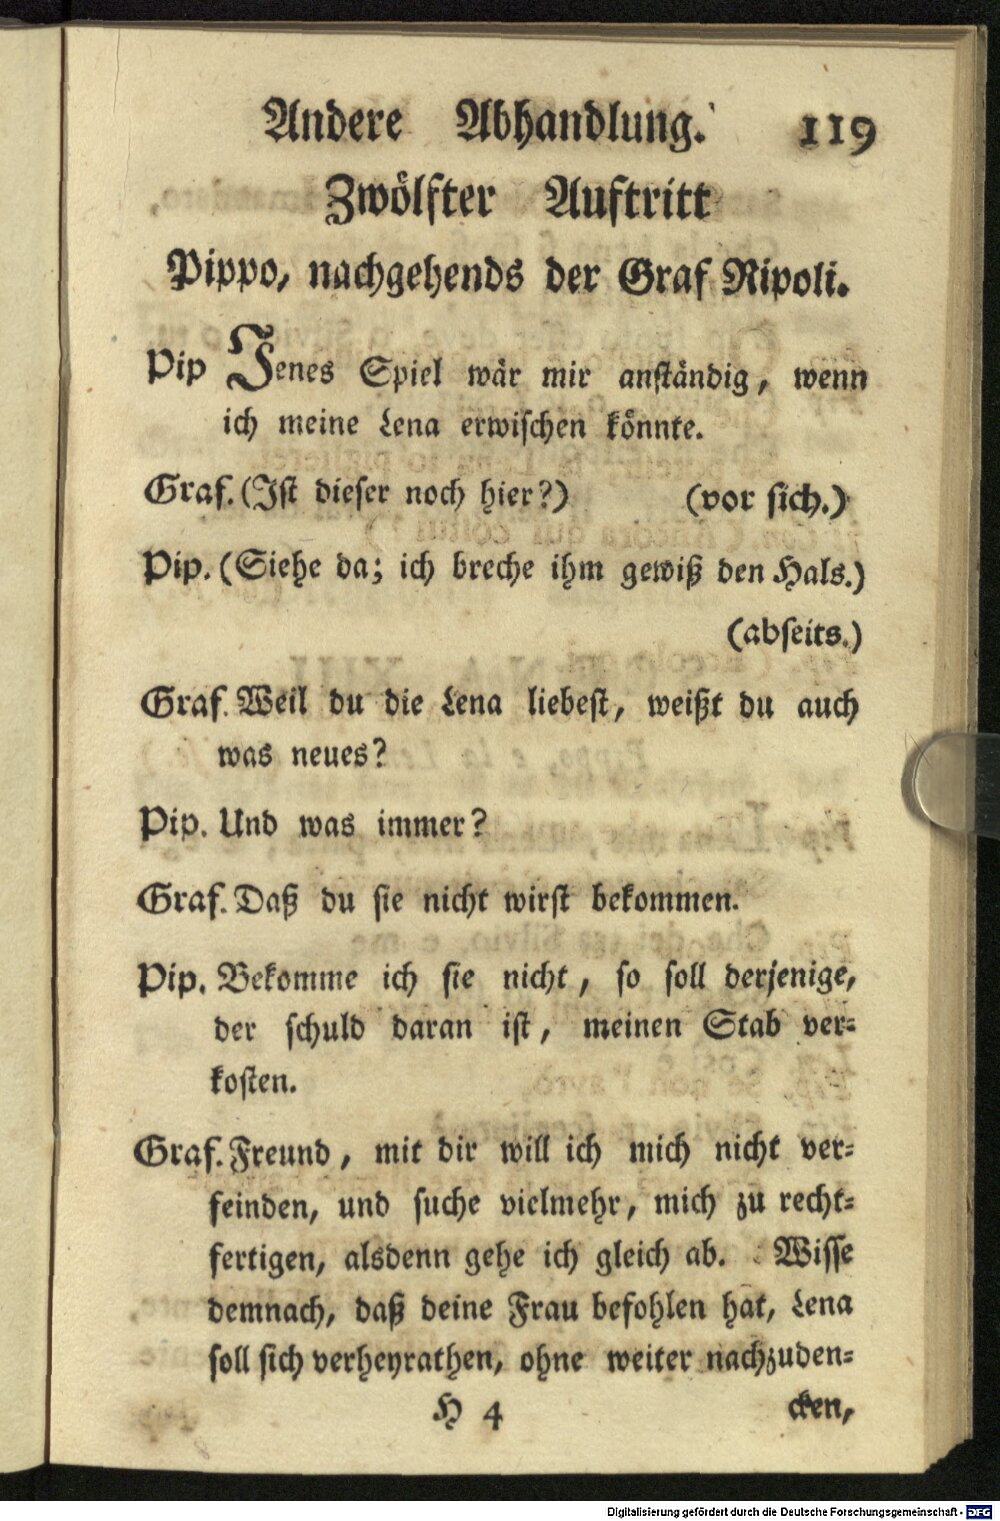 Andere Abhandlung. 119
Zwölfter Auftritt
Pippo, nachgehends der Graf Ripoli.
Pip Jenes Spiel wär mir anständig, wenn
ich meine Lena erwischen könnte.
Graf. (Ist dieser noch hier?) (vor sich.)
Pip. (Siehe da; ich breche ihm gewiß den Hals.)
(abseits.)
Graf. Weil du die Lena liebest, weißt du auch
was neues?
Pip. Und was immer?
Graf. Daß du sie nicht wirst bekommen.
Pip. Bekomme ich sie nicht, so soll derjenige,
der schuld daran ist, meinen Stab ver-
kosten.
Graf. Freund, mit dir will ich mich nicht ver-
feinden, und suche vielmehr, mich zu recht-
fertigen, alsdenn gehe ich gleich ab. Wisse
demnach, daß deine Frau befohlen hat, Lena
soll sich verheyrathen, ohne weiter nachzuden-
H 4 cken,
Digitalisierung gefördert durch die Deutsche Forschungsgemeinschaft - DFG